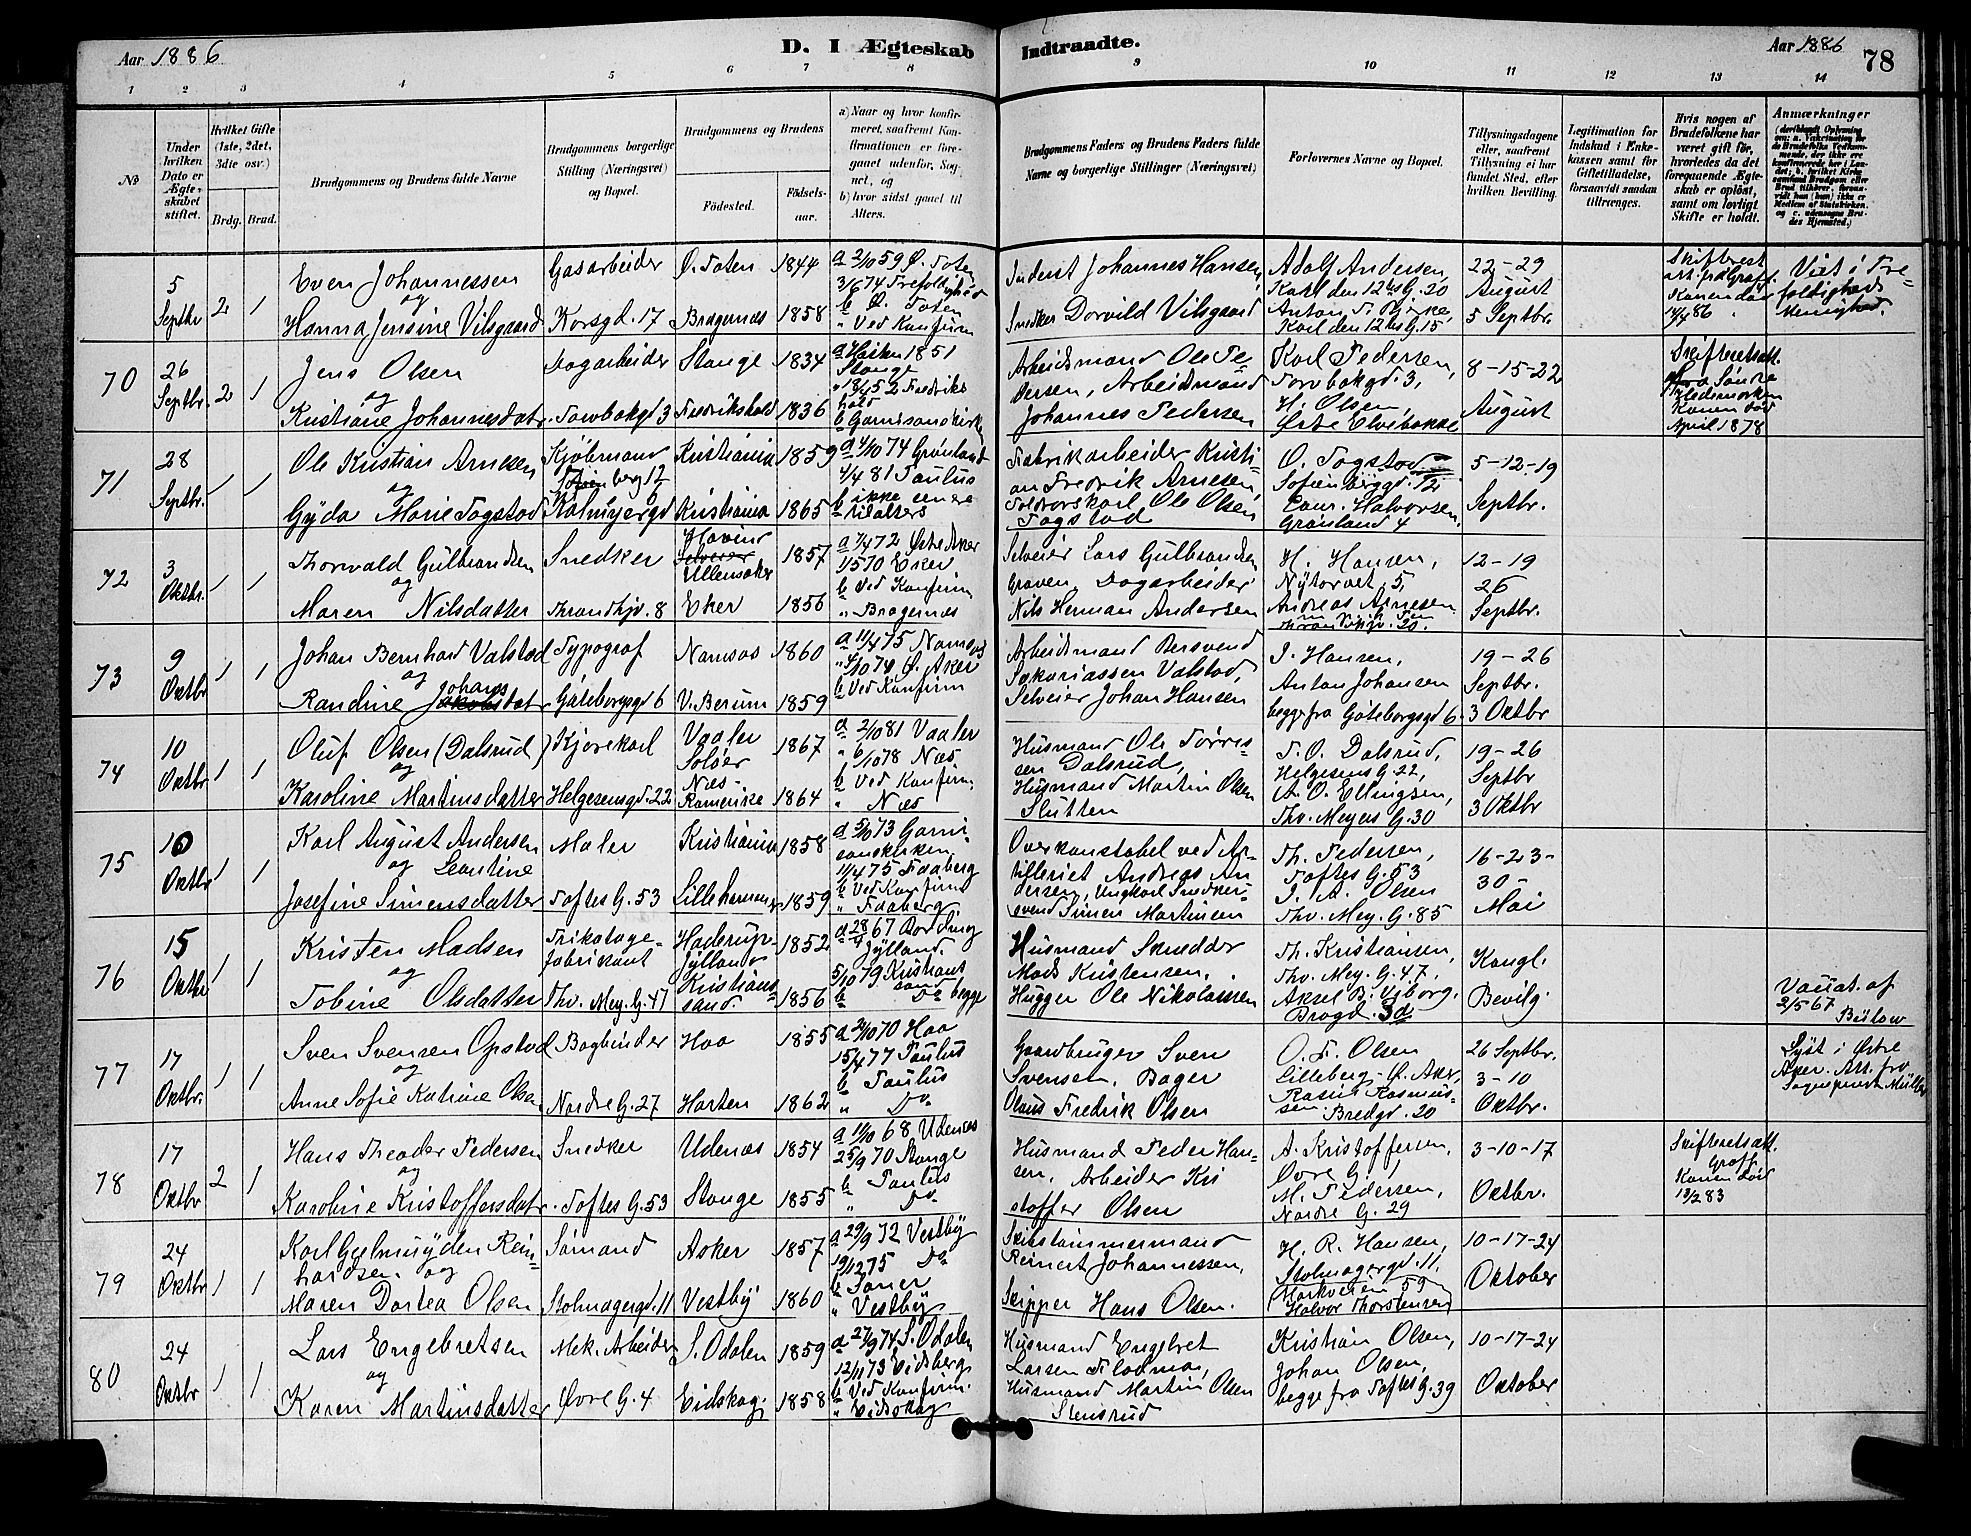 Aar 1886
D. I Ægteskab Indtraadte.
Aar 1886
78
1 2 3 4 5 6 7 8 9 10 11 12 13 14
No
Under hvilken Dato er Ægteskabet stiftet.
Hvilket Gifte (1ste, 2det, 3die osv.)
Brdg. Brud.
Brudgommens og Brudens fulde Navne
Brudgommens borgerlige Stilling (Næringsvei) og Bopæl.
Brudgommens og Brudens
Fødested.
Fødselsaar.
a) Naar og hvor konfirmeret, saafremt Konfirmationen er foregaaet udenfor Sognet, og
b) hvor sidst gaaet til Alters.
Brudgommens Faders og Brudens Faders fulde Navne og borgerlige Stillinger (Næringsvei)
Forlovernes Navne og Bopæl.
Tillysningsdagene eller, saafremt Tillysning ei har fundet Sted, efter hvilken Bevilling.
Legitimation for Indskud i Enkekassen samt for Giftetilladelse, forsaavidt saadan tiltrænges.
Hvis nogen af Brudefolkene har været gift før, hvorledes da det foregaaende Ægteskab er opløst, samt om lovligt Skifte er holdt.
Anmærkninger
5 Septbr 2 1
Even Johannessen
og
Hanna Jensine Vilsgaard
Gasarbeider
Korsgd. 17
Ø. Toten 1844
Bragernæs 1858
a 2/10 59 Ø. Toten
3/6 74 Trefoldighed
b Ø. Toten
" Ved Konfirm
Inderst Johannes Hansen
Snedker Dorvild Vilsgaard
Adolf Andersen
Karl den 12tes G. 20
Karl den 12tes G. 15
22-29
August
5 Septbr.
Konen død
14/4 86
Viet i Trefoldigheds Menighed.
70
26 Septbr. 2 1
Jens Olsen
og
Kristiane Johannesdatr.
Dagarbeider
Torvbakgd 3
Stange 1834
Fredrikshald 1836
a Høsten 1851
Stange
" 18/4 52 Fredrikshald
b Garnisonskirken
Arbeidsmand Ole Pedersen, Arbeidsmand
Johannes Pedersen
Karl Pedersen,
Torvbakgd. 3,
H. Olsen,
Østre Elvebakke
8-15-22
August
Skifteretsatt.
fra Søndre Hedemarken
Konen død
April 1878
71
28 Septbr. 1 1
Ole Kristian Arnesen
og
Gyda Marie Fogstad
Kjøbmand
Kristiania 1859
Kristiania 1865
a 4/10 74 Grønland
4/4 81 Paulus
b ikke senere
tilalters
Fabrikarbeider Kristian Fredrik Arnesen,
Toldvorskarl Ole Olsen
Fogstad
O. Fogstad
Sofienbergd. 12
Halvorsen,
Grønland 4
5-12-19
Septbr.
72
3 Oktbr. 1 1
Thorvald Gulbrandsen
og
Maren Nilsdatter
Snedker
Throndhjv. 8
Hovind
Ullensaker 1857
Eker 1856
a 7/4 72 Østre Aker
1/5 70 Eker
b Ved Konfirm
" Bragernæs
Selveier Lars Gulbrandsen
Graven, Dagarbeider
Nils Herman Andersen
H. Hansen,
Nytorvet 5,
Andreas Arnesen
12-19
26
Septbr.
73
9 Oktbr 1 1
Johan Bernhard Valstad
og
Randine Johansdatr
Typograf
Gøteborggd 6
Namsos 1860
V. Bærum 1859
a 11/4 75 Namsos
" 4/10 74 Ø. Aker
b Ved Konfirm
Arbeidsmand Bersvend
Sakariassen Valstad,
Selveier Johan Hansen
J. Hansen,
Anton Johansen
begge fra Gøteborgsgd 6
19-26
Septbr.
3 Oktbr
74
10 Oktbr 1 1
Oluf Olsen (Dalsrud)
og
Karoline Martinsdatter
Kjørekarl
Helgesensgd. 22
Vaaler
Solør 1867
Næs
Romerike 1864
a 2/10 81 Vaaler
" 6/10 78 Næs
b Ved Konfirm.
" Næs
Husmand Ole Torressen Dalsrud,
Husmand Martin Olsen
Slutten
T. O. Dalsrud,
Helgesens G. 22,
A. O. Ellingsen,
Thv. Meyers G. 30
19-26
Septbr
3 Oktbr
75
10 Oktbr 1 1
Karl August Andersen
og Leontine
Josefine Simensdatter
Maler
Toftes G. 53
Kristiania 1858
Lillehammer 1859
a 5/10 73 Garnisonskirken
11/4 75 Faaberg
b Ved Konfirm
" Faaberg
Overkonstabel ved Artilleriet Andreas Andersen, Ungkarl Snedkersvend Simen Martinsen
Th. Pedersen,
Toftes G. 53
J. A. Olsen
Thv. Mey. G. 85
16-23-
30-
Mai
76
15 Oktbr 1 1
Kristen Madsen
og
Tobine Olsdatter
Trikotagefabrikant
Thv. Mey. G. 47
Haderup
Jylland 1852
Kristianssand. 1856
a 28/4 67 Bording
Jylland.
5/10 79 Kristianssand
b Do begge
Husmand Skrædder
Mads Kristensen,
Hugger Ole Nikolaisen
Th. Kristiansen,
Thv. Mey. G. 47,
Aksel B. Viborg,
Brogd. 3a
Kongl.
Bevilg.
Vacat. af
2/5 67
Bülow
77
17 Oktbr. 1 1
Sven Svensen Opstad
og
Anne Sofie Katrine Olsen
Bogbinder
Nordre G. 27
Haa 1855
Horten 1862
a 2/10 70 Haa
15/4 77 Paulus
b Paulus
" Do
Gaardbruger Sven
Svensen, Bager
Olaus Fredrik Olsen
O. F. Olsen
Lilleberg - Ø. Aker,
Rasmus Rasmussen
Bredgd. 20
26 Septbr.
3-10
Oktbr.
Lyst i Østre
Aker. Att. fra
Sogneprest Müller
78
17 Oktbr 2 1
Hans Theodor Pedersen
og
Karoline Kristoffersdatr.
Snedker
Toftes G. 53
Udenæs 1854
Stange 1855
a 11/10 68 Udenæs
25/9 70 Stange
b Paulus
" Do
Husmand Peder Hansen, Arbeider Kristoffer Olsen
A. Kristoffersen,
Øvre G. 1
M. Pedersen,
Nordre G. 29
3-10-17
Oktbr.
Skifteretsatt.
Graff.
Konen død
13/2 83
79
24 Oktbr 1 1
Karl Gjelmuyden Reinhardsen og
Maren Dortea Olsen
Sømand
Stolmagergd. 11
Asker 1857
Vestby 1860
a 29/9 72 Vestby
19/12 75 Do
b Saner
" Vestby
Skibstømmermand
Reinert Johannessen,
Skipper Hans Olsen.
H. R. Hansen,
Stolmagergd. 11,
Markveien 59
Halvor Thorstensen
10-17-24
Oktober
80
24 Oktbr 1 1
Lars Engebretsen
og
Karen Martinsdatter
Mek. Arbeider
Øvre G. 4
S. Odalen 1859
Eidskog 1858
a 27/9 74 S. Odalen
12/10 73 Eidsberg
b Ved Konfirm.
" Eidskog
Husmand Engebret
Larsen Flodmoe,
Husmand Martin Olsen
Stensrud
Kristian Olsen,
Johan Olsen,
begge fra Toftes G. 39
10-17-24
Oktober